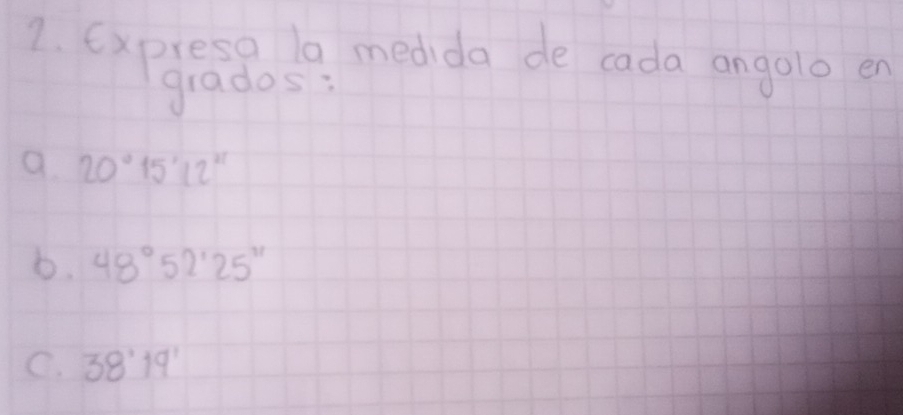 2. Expresa la medida de cada angolo en
grados:
a. 20°15'12"
b. 48°52'25"
c. 38'19'